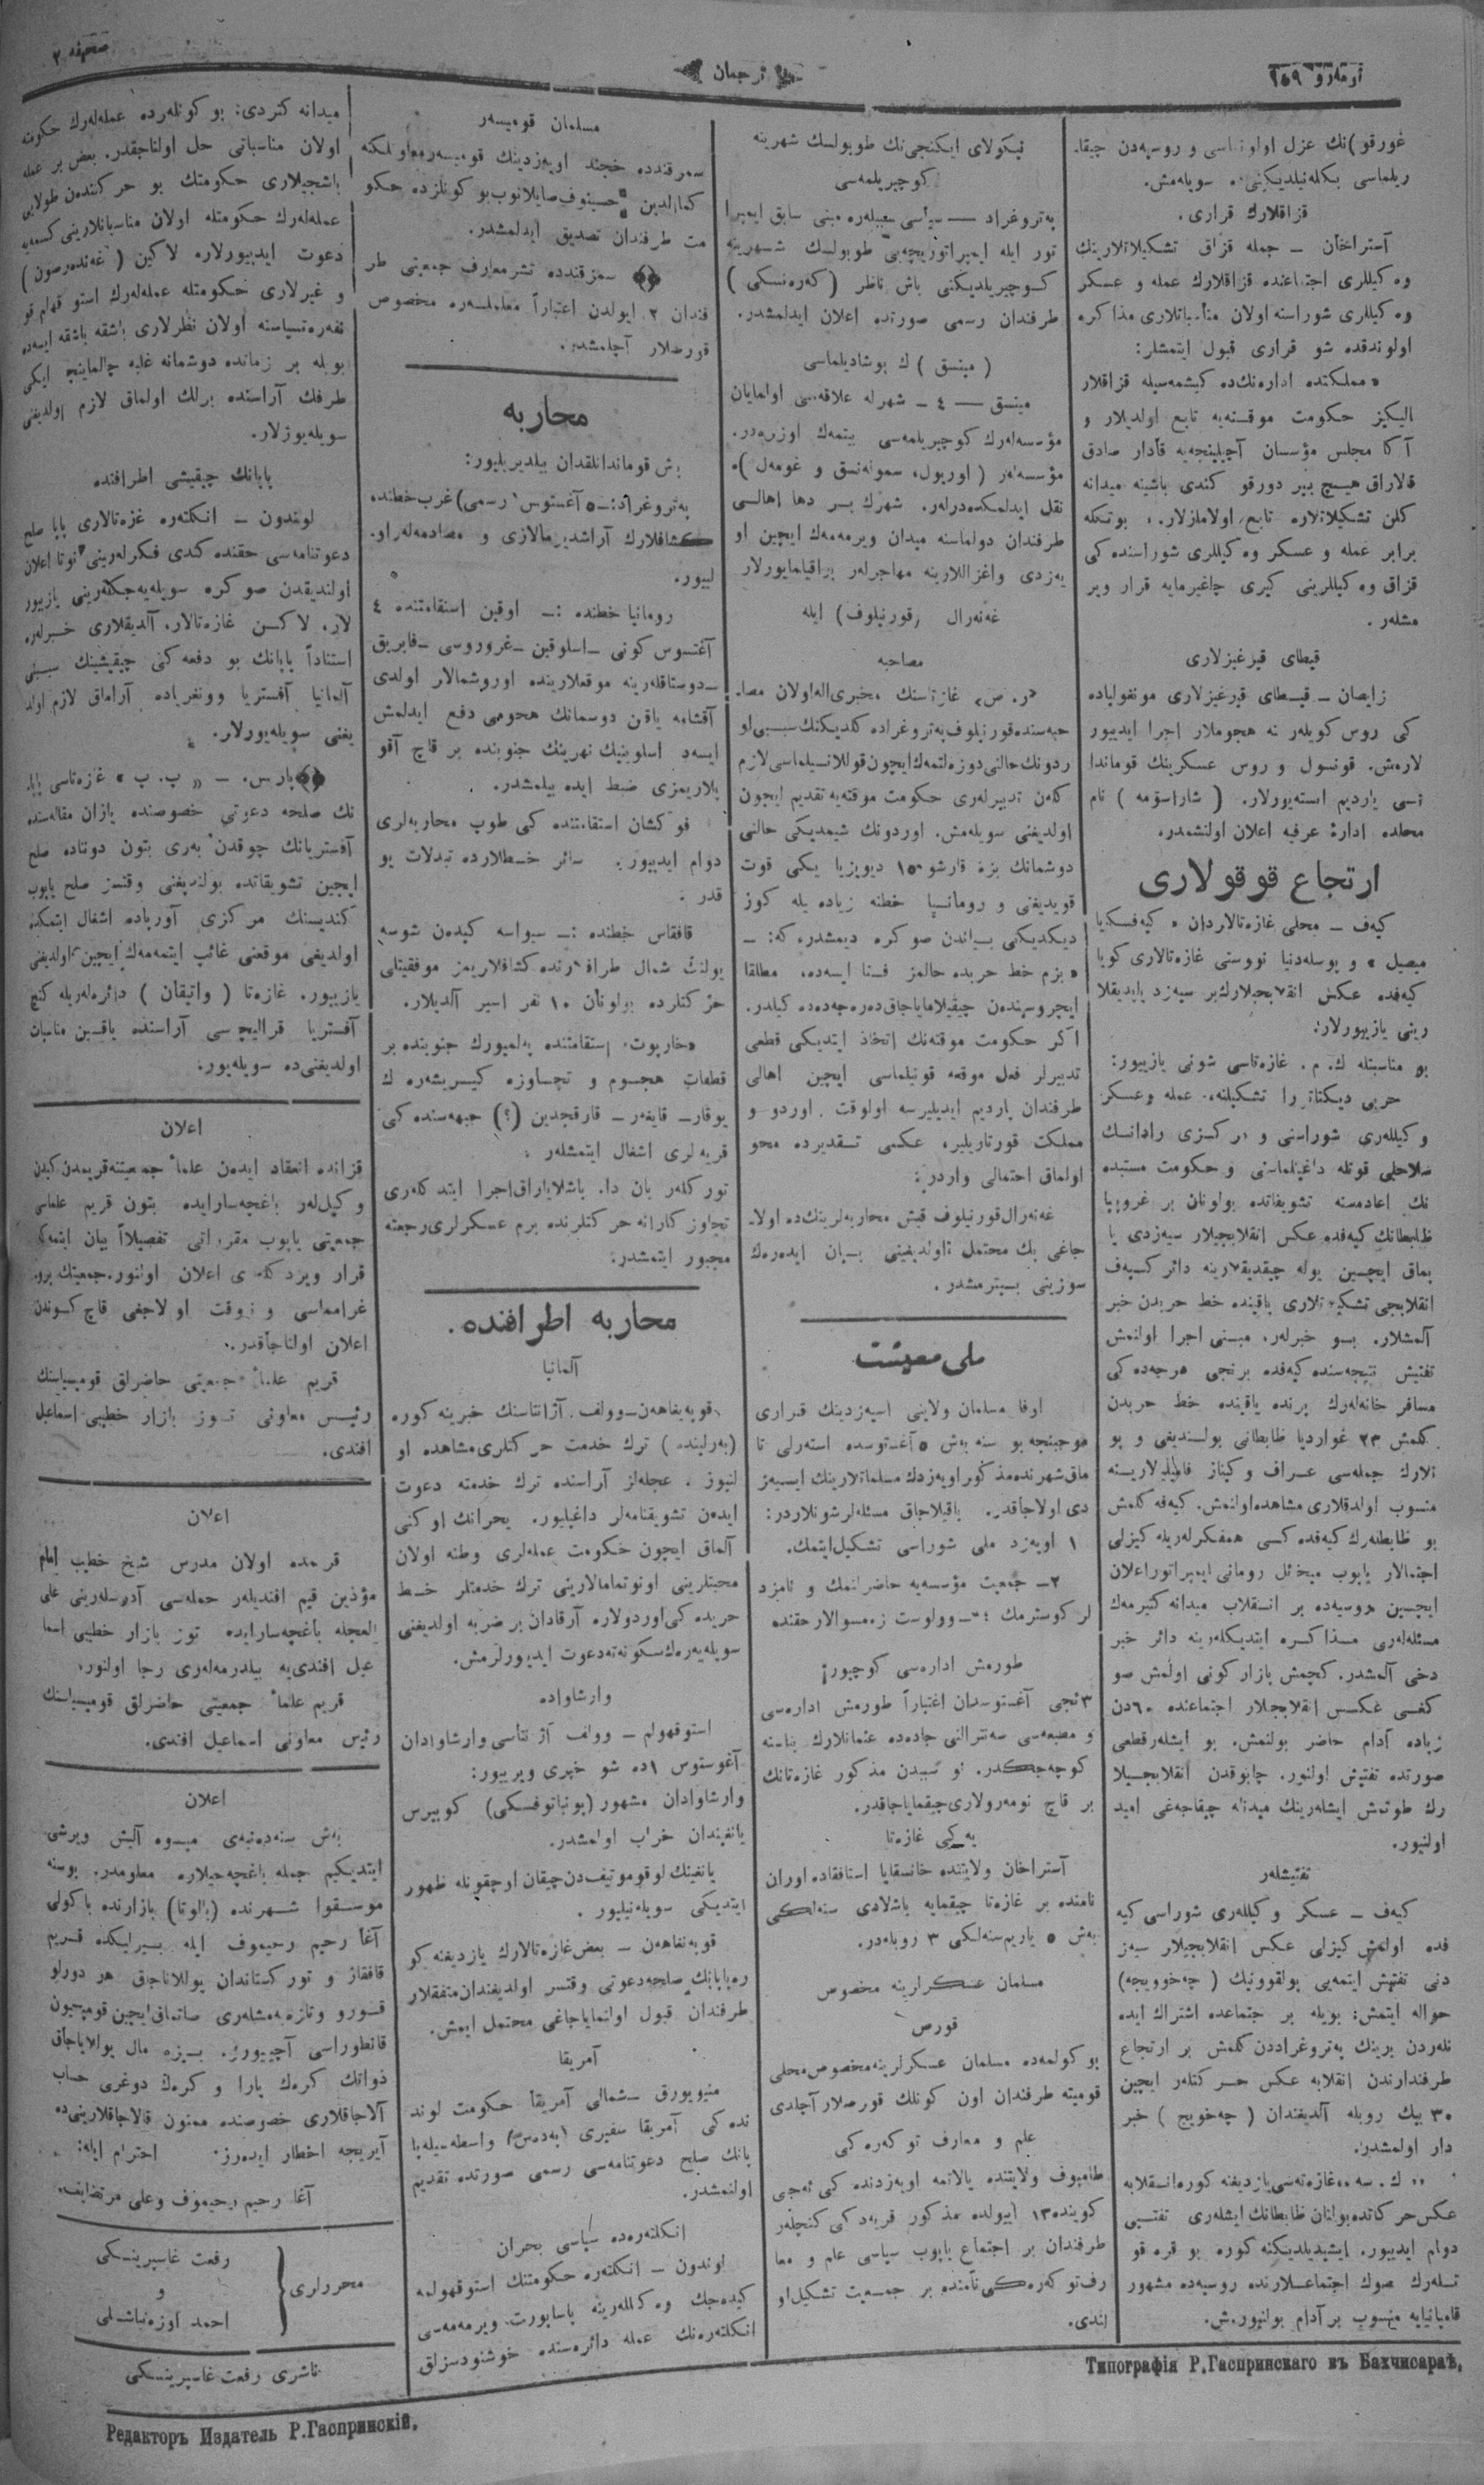 نومه‌رو ١٥٩
ترجمان
صحيفه ٢
غورقو) نك عزل اولونماسى و روسيه‌دن چيقا.
ريلماسى بكله‌نيلديكينى سويله‌مش.
قزاقلارك قرارى.
آستراخان ـ جمله قزاق تشكيلاتلارينك
وه كيللرى اجتماعنده قزاقلارك عمله و عسكر
وه كيللرى شوراسنه اولان مناسباتلارى مذاكره
اولوندقده شو قرارى قبول ايتمشلر:
«مملكتده اداره‌نك‌ده كيشمه‌سيله قزاقلار
اليكز حكومت موقته‌يه تابع اولديلار و
آكا مجلس مؤسسان آچيلينجه‌يه قادار صادق
قالاراق هيچ بير دورقو كندى باشينه ميدانه
كلن تشكيلاتلاره تابع اولامازلار، بوتكله
برابر عمله و عسكر وه كيللرى شوراسنده كى
قزاق وه كيللرينى كيرى چاغيرمايه قرار وير
مشلر.
قيطاى قيرغيزلارى
زايصان ـ قيطاى قيرغيزلارى مونغولياده
كى روس كويلرينه هجوملار اجرا ايدييور
لارمش. قونسول و روس عسكرينك قوماندا
نى يارديم استه‌يورلار. (شاراسومه) نام
محلده ادارۀ عرفيه اعلان اولنشمدر.
ارتجاع قوقولارى
كيه‌ف ـ محلى غازه‌تالاردان «كيه‌فسكايا
ميصيل» و پوسله‌دنيا نووستى غازه‌تالارى كويا
كيه‌فده عكس انقلابجيلارك بر سيه‌زد ياپديقلا
رينى يازييورلار.
بو مناسبتله ك. م. غازه‌تاسى شونى يازييور:
حربى ديكتاتورا تشكيلنه، عمله و عسكر
و كيللرى شوراسنى و مركزى رادانك
سلاحلى قوتله داغيلماسنى و حكومت مستبده
نك اعاده‌سنه تشويقاتده بولونان بر غروپپا
ظابطانك كيه‌فده عكس انقلابجيلار سيه‌زدى يا
پماق ايچين يوله چيقديقلارينه دائر كيه‌ف
انقلابجى تشكيلاتلارى ياقينده خط حربدن خبر
آلمشلار. بو خبرلره مبنى اجرا اولنمش
تفتيش نتيجه‌سنده كيه‌فده برنجى درجه‌ده كى
مسافر خانه‌لرك برنده ياقينده خط حربدن
كلمش ٢٣ غوارديا ظابطانى بولنديغى و بو
نلارك جمله‌سى غراف و كيناز فاميليالارينه
منسوب اولدقلارى مشاهده اولنمش. كيه‌فه كلمش
بو ظابطلرك كيه‌فده كى همفكرلريله كيزلى
اجتماعلار ياپوب ميخائل رومانى ايمپراتور اعلان
ايچين روسيه‌ده بر انقلاب ميدانه كتيرمه‌ك
مسئله‌لرى مذاكره ايتديكلرينه دائر خبر
دخى آلمشدر. كچمش بازار كونى اولمش صو
كغى عكس انقلابجلار اجتماعنده ٦٠دن
زياده آدام حاضر بولنمش. بو ايشلر قطعى
صورتده تفتيش اولنور. چابوقدن انقلابجيلا
رك طوتمش ايشلرينك ميدانه چيقاجغى اميد
اولنيور.
تفتيشلر
كيه‌ف ـ عسكر وكيللرى شوراسى كيه
فده اولمش كيزلى عكس انقلابجيلار سيه‌ز
دنى تفتيش ايتمه‌يى پولقوونيك (چه‌خوويچه)
حواله ايتمش؛ بويله بر جتماعده اشتراك ايده
نلردن برينك په‌تروغراددن كلمش بر ارتجاع
طرفدارندن انقلابه عكس حركتلر ايچين
٣٠ بيك روبله آلديغندان (چه‌خويچ) خبر
دار اولمشدر.
،، ك. سه ،، غازه‌ته‌سى يازديغنه كوره انقلابه
عكس حركاتده بولنان ظابطانك ايشلرى تفتيشى
دوام ايدييور. ايشيديلديكنه كوره بو قره قو
تله‌رك صوك اجتماعلارنده روسيه‌ده مشهور
قامپانيايه منسوب بر آدام بولنيورمش.
نيكولاى ايكنجى‌نك طوبولسك شهرينه
كوچيريلمه‌سى
په‌تروغراد ـ سياسى سببلره مبنى سابق ايمپرا
تور ايله ايمپراتوريچه‌نى طوبولسك شهرينه
كوچيريلديكنى باش ناظر (كه‌ره‌نسكى)
طرفندان رسمى صورتده اعلان ايدلمشدر.
(مينسق) ك بوشاديلماسى
مينسق ـ ٤ ـ شهرله علاقه‌سى اولمايان
مؤسسه‌لرك كوچيريلمه‌سى بيتمه‌ك اوزره‌در.
مؤسسه‌لر (اوريول، سمولنسق و غومه‌ل)ه
نقل ايدلمكده‌درلر. شهرك بر دها اهالى
طرفندان دولماسنه ميدان ويرمه‌مه‌ك ايچين او
يه‌زدى واغزاللارينه مهاجرلر براقيلمايورلار
غه‌نه‌رال (قورنيلوف) ايله
مصاحبه
«ر. ص» غازه‌تاسنك مخبرى‌اله‌اولان مصا.
حبه‌سنده قورنيلوف په‌تروغراده كلديكنك سببى او
ردونك حالنى دوزه‌لتمه‌ك‌ايچون قوللانيلماسى لازم
كلن تدبيرلرى حكومت موقته‌يه تقديم ايچون
اولديغنى سويله‌مش. اوردونك شيمديكى حالنى
دوشمانك بزه قارشو ١٥٠ ديويزيا يكى قوت
قويديغنى و رومانيا خطنه زياده يله كوز
ديكديكنى بياندن صوكره ديمشدر، كه: ـ
«بزم خط حربده حالمز فنا ايسه‌ده، مطلقا
ايچروسندن چيقيلامايا‌جاق درجه‌ده‌ده كيلدر.
اكر حكومت موقته‌نك اتخاذ ايتديكى قطعى
تدبيرلر فعل موقعه قونيلماسى ايچين اهالى
طرفندان يارديم ايديليرسه اولوقت اوردو و
مملكت قورتاريلير، عكسى تقديرده محو
اولماق احتمالى واردر»:
غه‌نه‌رال قورنيلوف قيش محاربه‌لرينك‌ده اولا.
جاغى بك محتمل اولديغينى بيان ايده‌ره‌ك
سوزينى بيتيرمشدر.
ملى معيشت
اوفا مسلمان ولايتى اسيه‌زدينك قرارى
موجبنجه بو سنه به‌ش ٥ آغستوسده استه‌رلى تا
ماق شهرنده مذكور اويه‌زدك مسلمانلارينك ايسيه‌ز
دى اولاجاقدر. باقيلاجاق مسئله‌لر شونلاردر:
١ اويه‌زد ملى شوراسى تشكيل ايتمك.
٢ـ جمعيت مؤسسه‌يه حاضرلنمك و نامزد
لر كوسترمك ؛ ٣ـ وولوست زه‌مستوالار حقنده
طورمش اداره‌سى كوچيور؛
٣نجى آغستوسدان اعتباراً طورمش اداره‌سى
و مطبعه‌سى سه‌نترالنى جاده‌ده عثمانلارك بناسنه
كوچه‌جكدر. او سببدن مذكور غازه‌تانك
بر قاچ نومه‌رولارى چيقماياجاقدر.
يه‌كى غازه‌تا
آستراخان ولايتنده خانسقايا استافقاده اوران
نامنده بر غازه‌تا چيقمايه باشلادى سنه‌لكى
به‌ش ٥ ياريم سنه‌لكى ٣ روبله‌در.
مسلمان عسكرلرينه مخصوص
قورص
بو كولمه‌ده مسلمان عسكرلرينه مخصوص محلى
قوميته طرفندان اون كونلك قورصلار آچلدى
علم و معارف توكه‌ره‌كى
طامبوف ولايتنده يالاتمه اويه‌زدنده كى نه‌جى
كوينده ١٣ ايولده مذكور قريه‌دكى كنچلر
طرفندان بر اجتماع ياپوب سياسى علم و معا
رف توكه‌ره‌كى نامنده بر جمعيت تشكيل او
لندى.
مسلمان قوميسه‌ر
سمرقندده خجند اويه‌زدينك قوميسه‌ر معاونلكنه
كمالدين حسينوف صايلانوب بو كونلرده حكو
مت طرفندان تصديق ايدلمشدر.
سمرقندده نشر معارف جمعيتى طر
فندان ٢ ايولدن اعتباراً معلملره مخصوص
قورصلار آچلمشدر.
محاربه
باش قوماندانلقدان بيلديريليور:
په‌تروغراد: ـ ٥ آغستوس (رسمى) غرب خطنده
كشافلارك آراشديرمالازى و مصادمه‌لر او.
لييور.
رومانيا خطنده :ـ اوقين استقامتنده ٤
آغستوس كونى ـ اسلوقين ـ غروروسى ـ فابريق
ـ دوستاقله‌رينه موقعلارينده اوروشمالار اولدى
آقشامه ياقن دوسمانك هجومى دفع ايدلمش
ايسه‌ده اسلوينيك نهرينك جنوبنده بر قاچ آقو
پلاريمزى ضبط ايده بيلمشدر.
فوكشان استقامتنده كى طوپ محاربه‌لرى
دوام ايدييور. سائر خطلارده تبدلات يو
قدر.
قافقاس خطنده :ـ سيواسه كيده‌ن شوسه
يولنك شمال طرافلارنده كشافلاريمز موفقيتلى
حركتلرده بولونان ١٠ نفر اسير آلديلار.
«خارپوت» استقامتنده په‌لميورك جنوبنده بر
قطعات هجوم و تجاوزه كيريشه‌ره ك
يوقارـ قايغه‌رـ قارقجدين (؟) جبهه‌سنده كى
قريه‌لرى اشغال ايتمشلر.
توركلر يان دا. باشلاياراق اجرا ايتدكلرى
تجاوزكارانه حركتلرنده برم عسكرلرى رجعته
مجبور ايتمشدر.
محاربه اطرافنده.
آلمانيا
قوپه‌نفاهه‌ن ـ وولف. آژانتاسنك خبرينه كوره
(به‌رلينده) ترك خدمت حركتلرى مشاهده او
لنيوز. عجله‌لر آراسنده ترك خدمته دعوت
ايده‌ن تشويقنامه‌لر داغيليور. بحرانك اوكنى
آلماق ايچون حكومت عمله‌لرى وطنه اولان
محبتلرينى اونوتمامالارينى ترك خدمتلر خط
حربده كى اوردولاره آرقادان بر ضربه اولديغنى
سويله‌يه‌ره‌ك سكونه‌ته دعوت ايديورلرمش.
وارشاواده
استوقهولم ـ وولف آژنتاسى وارشاوادان
آغوستوس ١ده شو خبرى ويرييور:
وارشاوادان مشهور (پونياتوفسكى) كوپيرس
يانغيندان خراب اولمشدر.
يانغينك لوقوموتيف‌دن چيقان اوچقونله ظهور
ايتديكى سويله‌نيليور.
قوپه‌نفاهه‌ن ـ بعض غازه‌تالارك يازديغنه كو
ره پاپانك صلحه دعوتى وقتسز اولديغندان متفقلار
طرفندان قبول اولنماياجاغى محتمل ايمش.
آمريقا
نيويورق ـ شمالى آمريقا حكومت لوند
نده كى آمريقا سفيرى (په‌دس) واسطه‌سيله پا
پانك صلح دعوتنامه‌سى رسمى صورتده تقديم
اولنمشدر.
انكلتره‌ده سياسى بحران
لوندون ـ انكلتره حكومتنك استوقهولمه
كيده‌جك وه كيللرينه پاساپورت ويرمه‌مه‌سى
انكلتره‌نك عمله دائره‌سنده خوشنودسزلق
ميدانه كتردى: بو كونلرده عمله‌لرك حكومته
اولان مناسباتى حل اولناجقدر. بعض بر عمله
باشچيلارى حكومتك بو حركتندن طولايى
عمله‌لرك حكومتله اولان مناسباتلارينى كسمه‌يه
دعوت ايدييورلار. لاكين (غه‌نده‌رصون)
و غيرلارى حكومتله عمله‌لرك استوقهولم قو
نفه‌ره‌نسياسنه اولان نظرلارى باشقه باشقه ايسه‌ده
بويله بر زمانده دوشمانه غلبه چالماينچ ايكى
طرفك آراسنده برلك اولماق لازم اولديغنى
سويله‌يوزلار.
پاپانك چيقيشى اطرافنده
لوندون ـ انكلتره غزه‌تالارى پاپا صلح
دعوتنامه‌سى حقنده كندى فكرلرينى نوتا اعلان
اولنديقدن صوكره سويله‌يه‌جكلرينى يازييور
لار. لاكن غازه‌تالار، آلديقلارى خبرلره
استناداً پاپانك بو دفعه‌كى چيقيشينك سببنى
آلمانيا آفستريا وونغرياده آراماق لازم اولد
يغنى سويله‌يورلار.
پارس. ـ «پ. پ» غازه‌تاسى پاپا.
نك صلحه دعوتى خصوصنده يازان مقاله‌سنده
آفستريانك چوقدن بەرى بتون دونتاده صلح
ايچين تشويقاتده بولنديغنى وقتسز صلح ياپوب
كنديسنك مركزى آورپاده اشغال ايتمكده
اولديغى موقعنى غائب ايتمه‌مه‌ك ايچين اولديغنى
يازييور. غازه‌تا (واتيقان) دائره‌لريله كنج
آفستريا قراليچه‌سى آراسنده ياقين مناسبات
اولديغنى‌ده سويله‌يور.
اعلان
قزانده انعقاد ايده‌ن علماء جمعيتنه قريمدن كيدن
وكيل‌لر باغچه‌سارايده بتون قريم علماسى
جمعيتى ياپوب مقرراتى تفصيلاً بيان ايتمه‌كه
قرار ويردكلرى اعلان اولنور. جمعيتك پرو.
غرامماسى و نه‌وقت اولاجغى قاچ كوندن
اعلان اولناجاقدر.
قريم علماء جمعيتى حاضرلق قوميسياسنك
رئيس معاونى توز بازار خطيبى اسماعيل
افندى.
اعلان
قريمده اولان مدرس شيخ خطيب امام
مؤذين قيم افنديلر جمله‌سى آدرسلرينى على
العجله باغچه‌سارايده توز بازار خطيبى اسما
عيل افندى‌يه بيلدرمه‌لرى رجا اولنور.
قريم علماء جمعيتى حاضرلق قوميسياسنك
رئيس معاونى اسماعيل افندى.
اعلان
به‌ش سنه‌دنبه‌رى ميوه آليش ويرشى
ايتديكيم جمله باغچه‌جيلاره معلومدر. بو سنه
موسقوا شهرنده (بالوتا) بازارنده باكولى
آغا رحيم رحيموف ايله بيرليكده قريم
قافقاز و توركستاندان يوللاناجاق هر دورلو
قورو و تازه يمشلرى صاتماق ايچين قوميسيون
قانطوراسى آچييورز. بيزه مال يوللاياجاق
ذواتك كرك پارا و كرك دوغرى حساب
آلاجاقلارى خصوصنده ممنون قالاجاقلارينى‌ده
آيريجه اخطار ايده‌رز. احترام ايله:
آغا رحيم رحيموف و على مرتضايف.
محررلرى
رفعت غاسپرينسكى
و
احمد اوزه‌نباشلى
ناشرى رفعت غاسپرينسكى
Типографія Р.Гаспринскаго въ Бахчисараѣ.
Редакторъ Издатель Р.Гаспринскій.